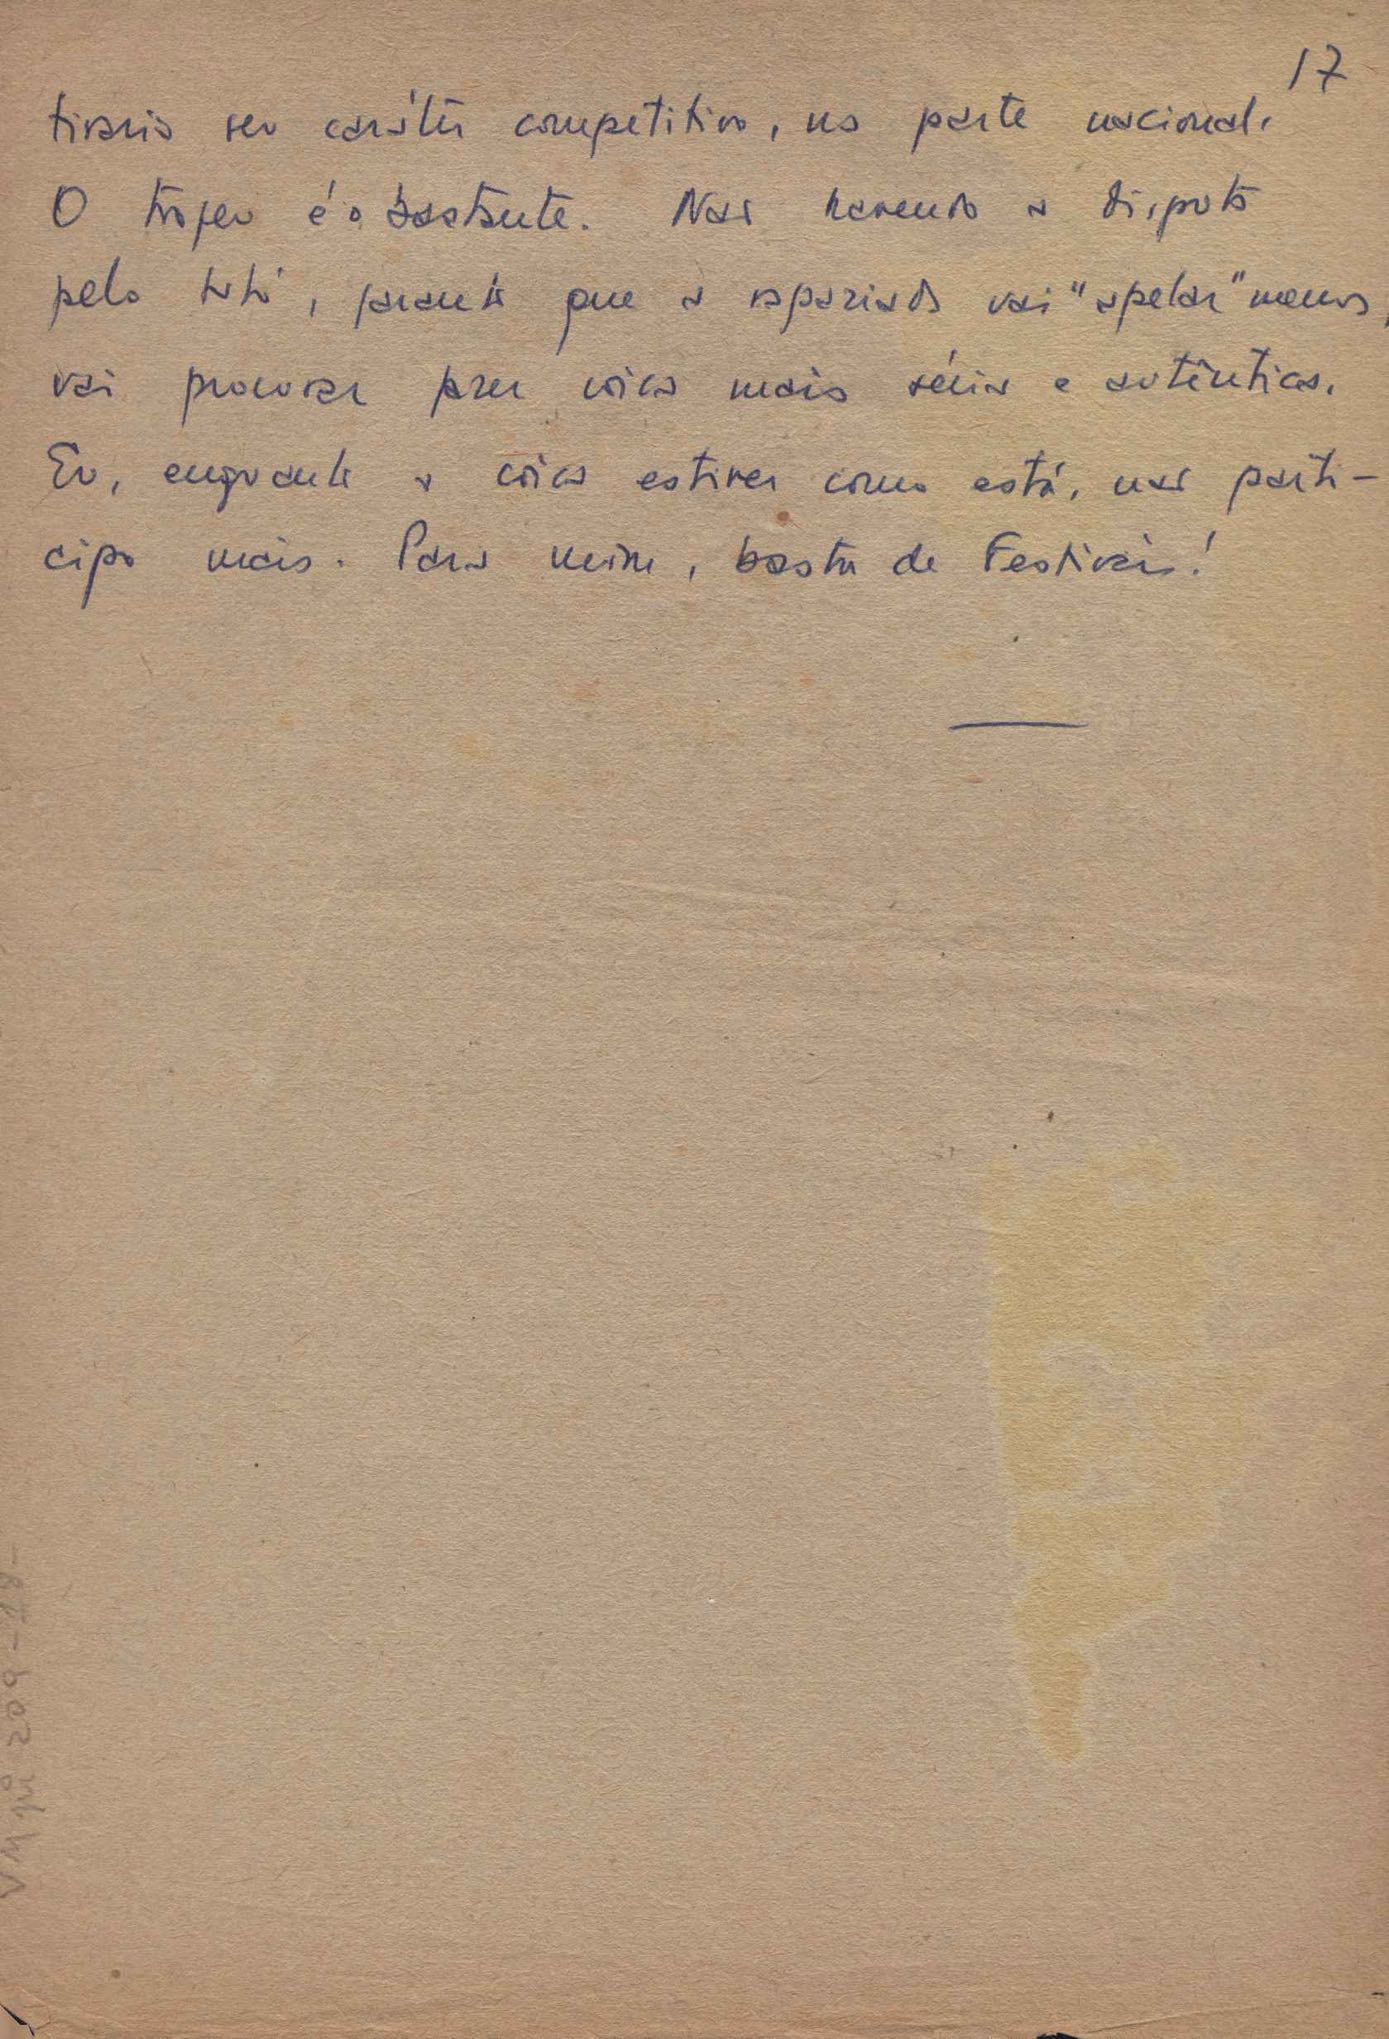 17
tiraria seu caráter competitivo, na parte nacional.
O troféu é o bastante. Não havendo a disputa
pelo tutú, garanto que a rapaziada vai "apelar" menos,
vai procurar fazer coisa mais séria e autêntica.
Eu, enquanto a coisa estiver como está, não parti-
cipo mais. Para mim, basta de Festivais!